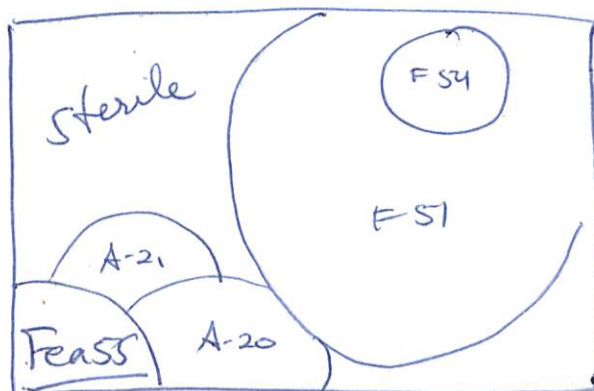 sterile
F 54
F-51
A-21
A-20
Fea55